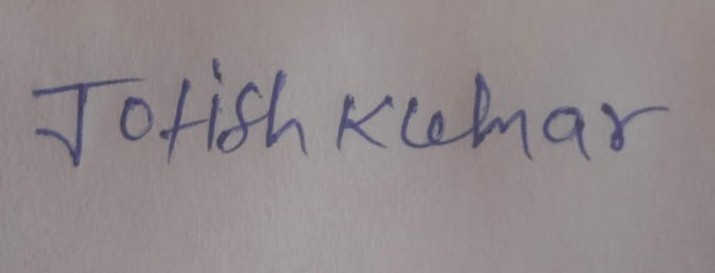 Jotish Kumar